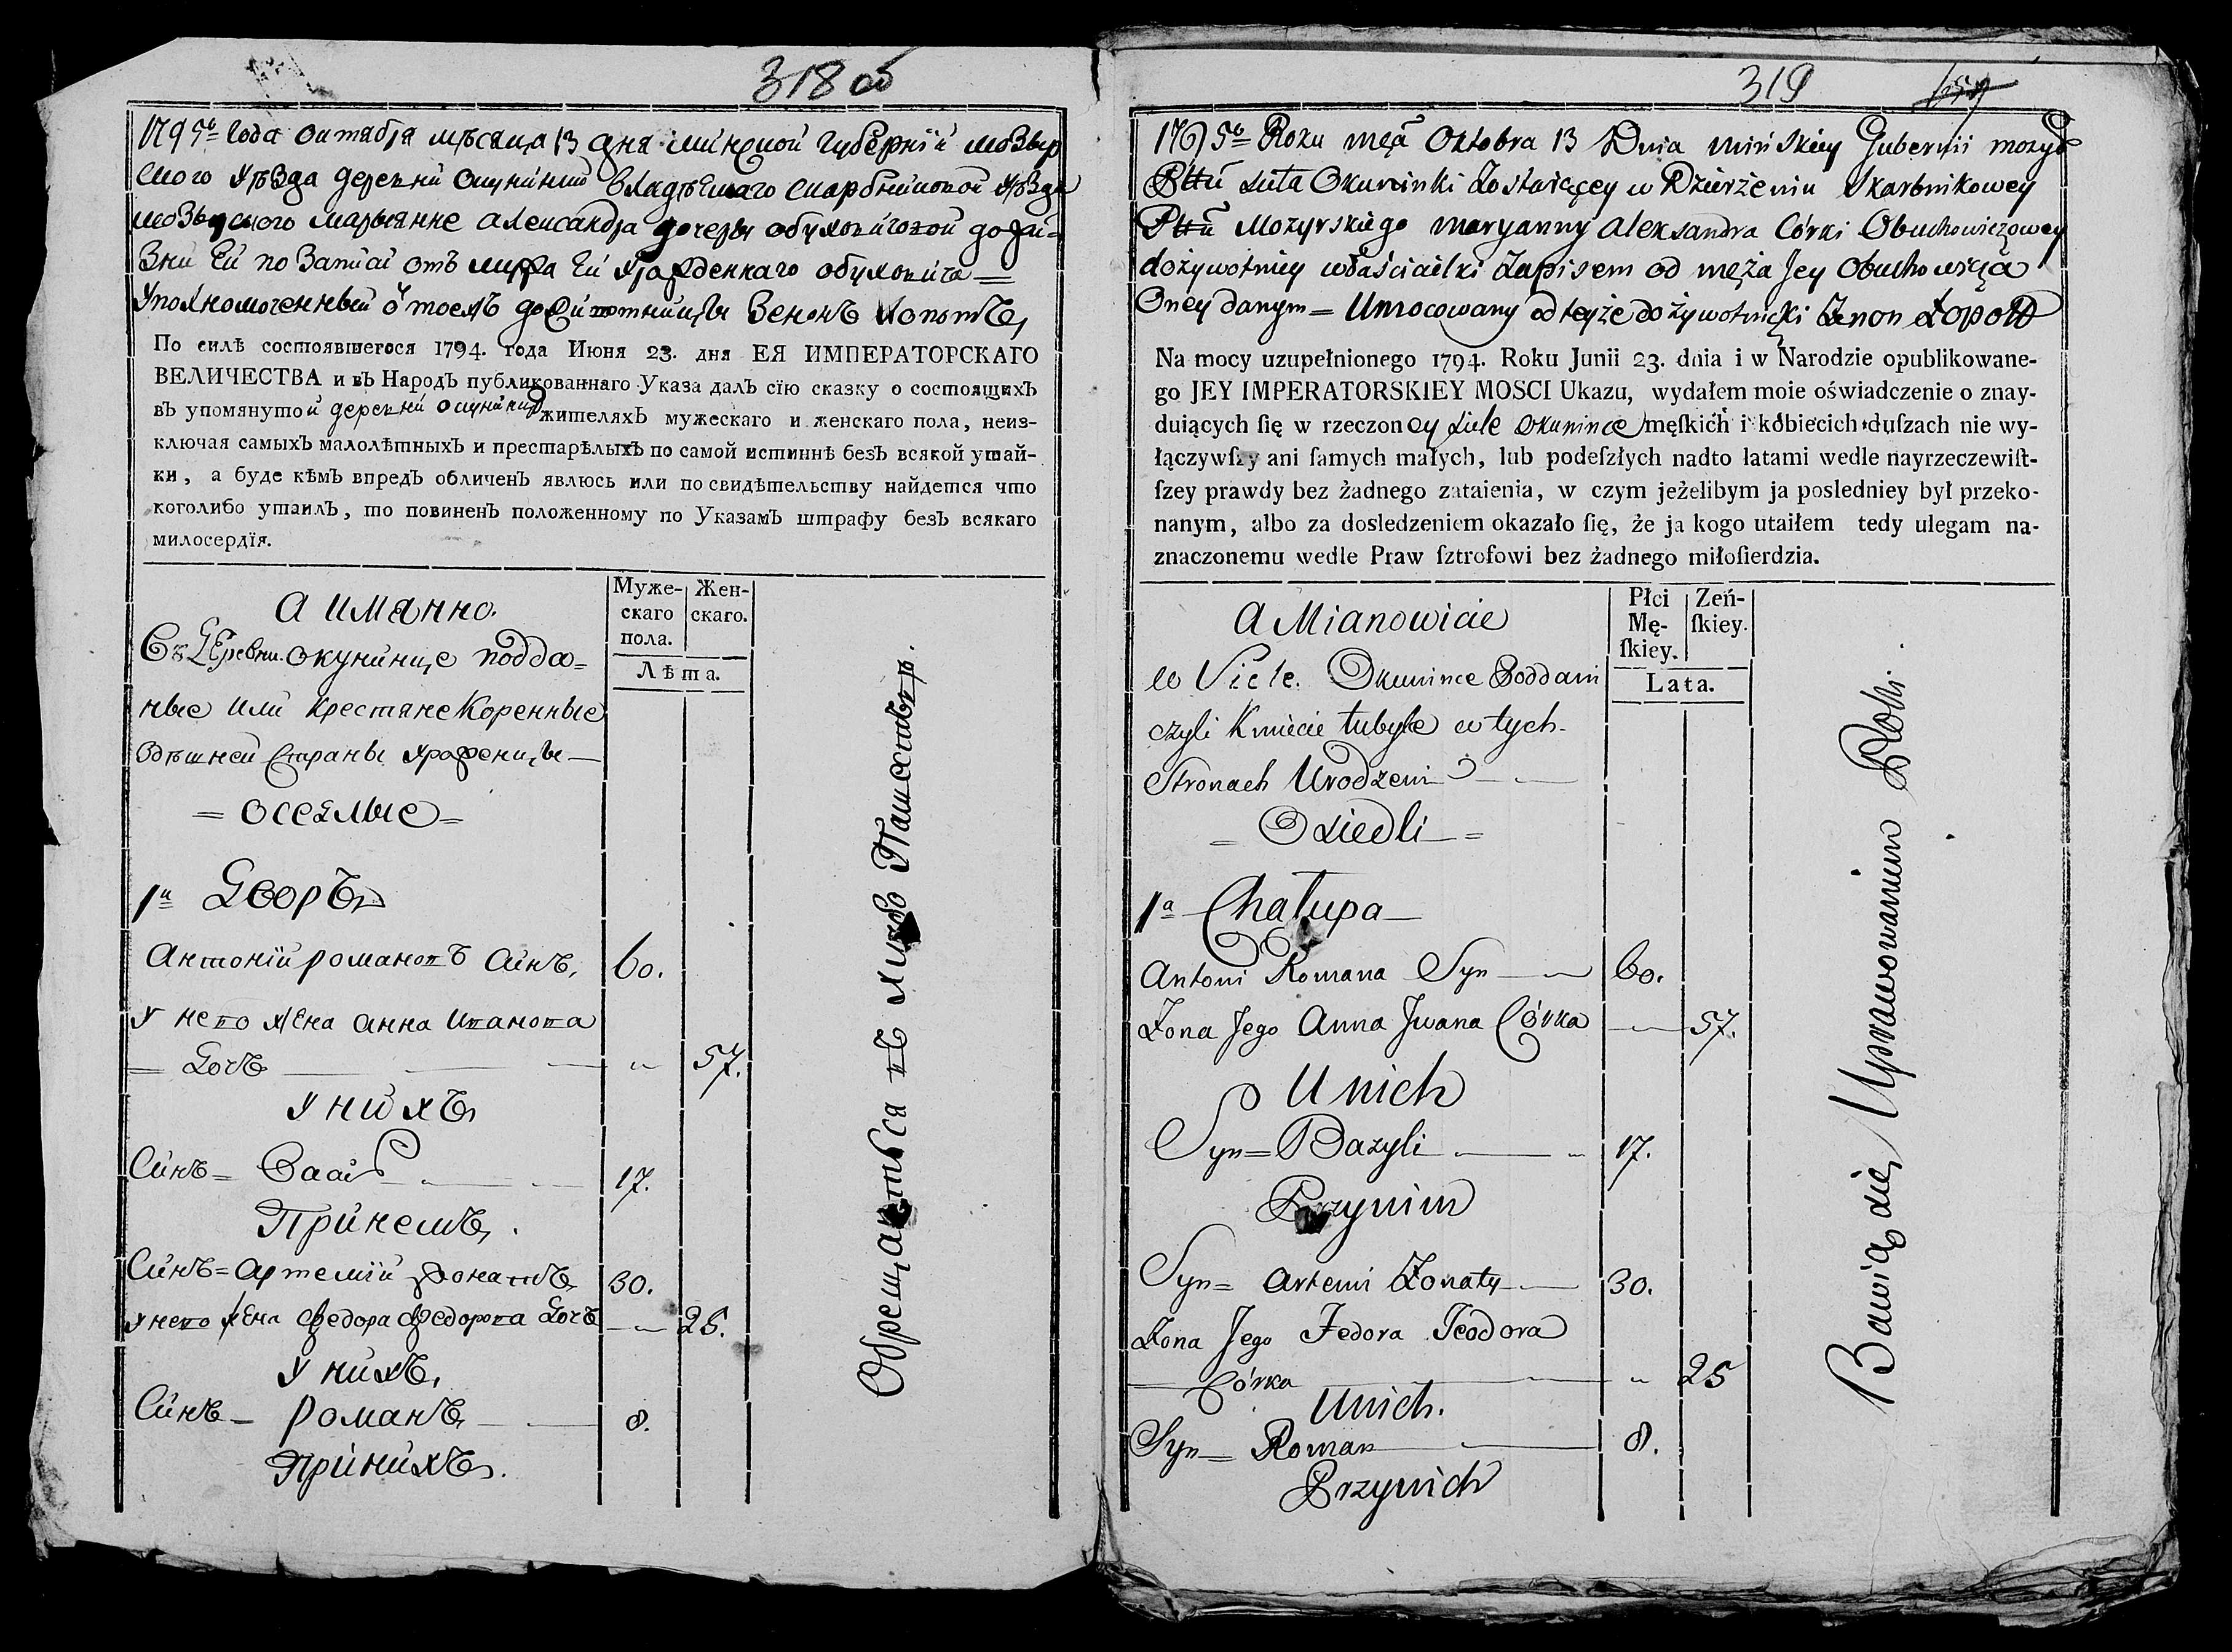 318 об
1795го Года октября мѣсяца 13 дня минской губерніи мозыр
ского уѣзда деревни окунинки владѣемаго скарбниковой уѣзда
мозырского марьянне александра дочеры обуховичовой дожи-
зни Ей по Записи отъ мужа Ей урожденнаго обуховича =
Уполномоченный отъ тоежъ дожывотницы Зенонъ Лопотъ,
По силѣ состоявшегося 1794. года Июня 23. дня ЕЯ ИМПЕРАТОРСКАГО
ВЕЛИЧЕСТВА и въ НародЪ публикованнаго Указа далЪ сїю сказку о состоящихЪ
въ упомянутой деревни окунинки жителяхЪ мужескаго и женскаго пола, неиз-
ключая самыхЪ малолѣтныхЪ и престарѣлыхЪ по самой истиннѣ безЪ всякой утай-
ки, а буде кѣмЪ впредЪ обличенЪ явлюсь или по свидѣтельству найдется что
коголибо утаилЪ, то повиненЪ положенному по УказамЪ штрафу безЪ всякаго
милосердїя.
Муже-скаго пола.
Жен-скаго.
Лѣта.
а имянно.
Въ Деревни окунинце подда=
ные или крестяне Коренные
Здѣшнеи Страны урожденцы —
= осеʌлые =
1й Дворъ
Антоній романовъ Синъ, 60.
У него жена анна иванова
= Дочь — " 57.
У нихъ
Синъ = Васил 17.
Принемъ.
Синъ = Артемій жонатъ 30.
У него жена федора федорова Дочь — 25.
У нихъ,
Синъ — романъ — 8.
Принихъ.
Обрещаются въ хлѣбо Пашествѣ.
319
1795го Roku męca Oktobra 13 Dnia mińskiey Gubernii mozyr
Pttu siuła Okuninki Zostaiącey w Dzierżeniu Skarbnikowey
Pttu Mozyrskiego maryanny Aleksandra Córki Obuchowiczowey
dożywotniey właścicielki Zapisem od męża Jey Obuchowicza
Oney danym = Umocowany od teyże dożywotniczki Zenon Łopott
Na mocy uzupełnionego 1794. Roku Junii 23. dnia i w Narodzie opublikowane-
go JEY IMPERATORSKIEY MOSCI Ukazu, wydałem moie oświadczenie o znay-
duiących ſię w rzeczoney siele Okunince męſkich i kobiecich duſzach nie wy-
łączywſzy ani ſamych małych, lub podeſzłych nadto latami wedle nayrzeczewiſt-
ſzey prawdy bez żadnego zataienia, w czym jeżelibym ja posledniey był przeko-
nanym, albo za dosledzeniem okazało ſię, że ja kogo utaiłem tedy ulegam na-
znaczonemu wedle Praw ſztrofowi bez żadnego miłoſierdzia.
Płci Mę-ſkiey.
Zeń-ſkiey.
Lata.
A Mianowicie
w Siele. Okunince Poddani
czyli Kmiecie tubyłe w tych-
Stronach Urodzeni —
= Osiedli =
1a Chałupa —
Antoni Romana Syn — 60.
Zona Jego Anna Jwana Córka — 57.
U nich
Syn = Bazyli — 17.
Przynim
Syn = Artemi Zonaty — 30.
Zona Jego Fedora Teodora
— Córka — " 25
Unich.
Syn = Roman — 8.
Przynich
Bawią się Uprawowaniem Roli.